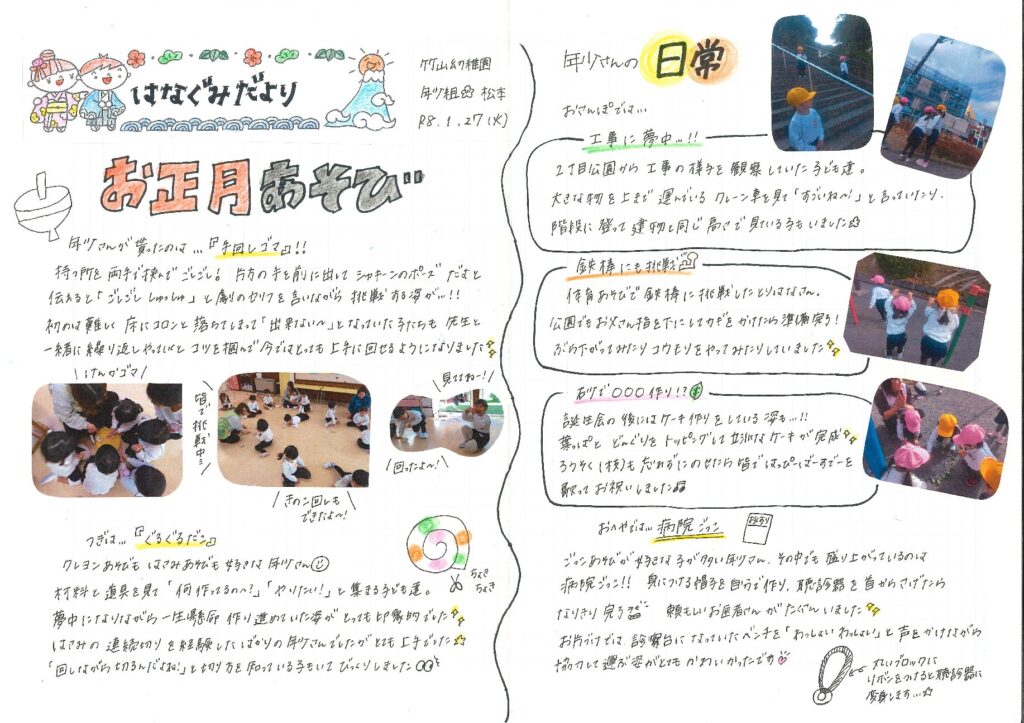 はなぐみだより
竹山幼稚園
年少組 松本
R8.1.27(火)
お正月あそび
年少さんが貰ったのは…『手回しゴマ』!!
持つ所を両手で挟んでごしごし! 片方の手を前に出してシャキーンのポーズ だよと
伝えると「ごしごし しゅしゅ」と魔りのセリフを言いながら 挑戦する姿が…!!
初めは難しく 床にコロンと落ちてしまって「出来ない〜」となっていた子たちも 先生と
一緒に繰り返しやっていくと コツを掴んで今ではとっても 上手に回せるようになりました
けんかゴマ
皆で挑戦中
見ててねー!
回ったよ〜!
きのこ回しも
できたよ〜!
つぎは…『ぐるぐるだこ』
クレヨンあそびも はさみあそびも 好きな 年少さん
材料と道具を見て「何作るの〜?」「やりたい!」と集まる子ども達。
夢中になりながら 一生懸命 作り進めていた姿が とっても印象的でした
はさみの 連続切りを経験したばかりの年少さんでしたがとても上手でした
「回しながら切るんだよね!」と切り方を知っている子もいてびっくりしました
ちょき
ちょき
年少さんの 日常
おさんぽでは…
工事に夢中…!!
2丁目公園から 工事の様子を観察していた子ども達。
大きな物を上まで 運んでいる クレーン車を見て「すごいね〜!」と言っていたり、
階段に登って建物と同じ高さで見ている子もいました
鉄棒にも挑戦
体育あそびで鉄棒に挑戦したとりはなさん。
公園でもお父さん指を下にしてカギをかけたら準備完了!
ぶら下がってみたりコウモリをやってみたりしていました
砂で〇〇〇作り!?
誕生会の後にはケーキ作りをしている姿も…!!
葉っぱと どんぐりをトッピングして立派なケーキが完成
ろうそく(枝)も忘れずにのせたら皆ではっぴーばーすでーを
歌ってお祝いしました
おへやでは…病院ごっこ
おくすり
ごっこあそびが好きな子が多い年少さん、その中でも盛り上がっているのは
病院ごっこ!! 身につける帽子を自分で作り、聴診器を首からさげたら
なりきり完了 頼もしいお医者さんがたくさんいました
お片づけでは、診察台になっていたベンチを「わっしょいわっしょい」と声をかけながら
協力して運ぶ姿がとてもかわいかったです
丸いブロックに
リボンをつけると聴診器に
変身します…